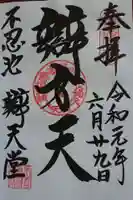 奉拝
令和元年
六月廿九日
辯才天
不忍池
辯天堂